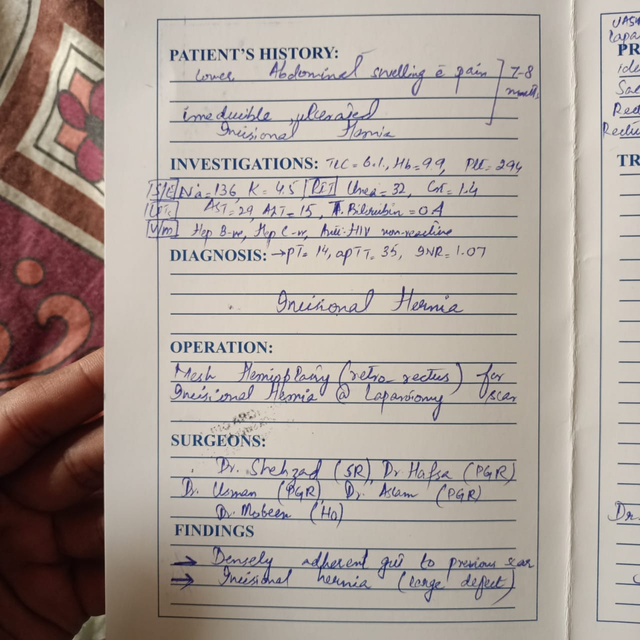 PATIENT'S HISTORY:
Lower Abdominal swelling c̄ pain ] 7-8
irreducible, ulcerated
Incisional Hernia
INVESTIGATIONS: TLC = 6.1, Hb = 9.9, PLT = 294
S/E Na = 136 K = 4.5 RFT Urea = 32, Cr = 1.4
LFTs AST = 29, ALT = 15, T. Bilirubin = 0.4
V/m Hep B-ve, Hep C-ve, Anti-HIV non-reactive
DIAGNOSIS: → PT = 14, apTT = 35, INR = 1.07
Incisional Hernia
OPERATION:
Mesh Hernioplasty (retro-rectus) for
Incisional Hernia @ Laparotomy scar
SURGEONS:
Dr. Shehzad (SR), Dr Hafsa (PGR)
Dr. Usman (PGR), Dr. Aslam (PGR)
Dr. Mobeen (HO)
FINDINGS
→ Densely adherent gut to previous scar
⇒ Incisional hernia (large defect)
PR
TR
Dr.